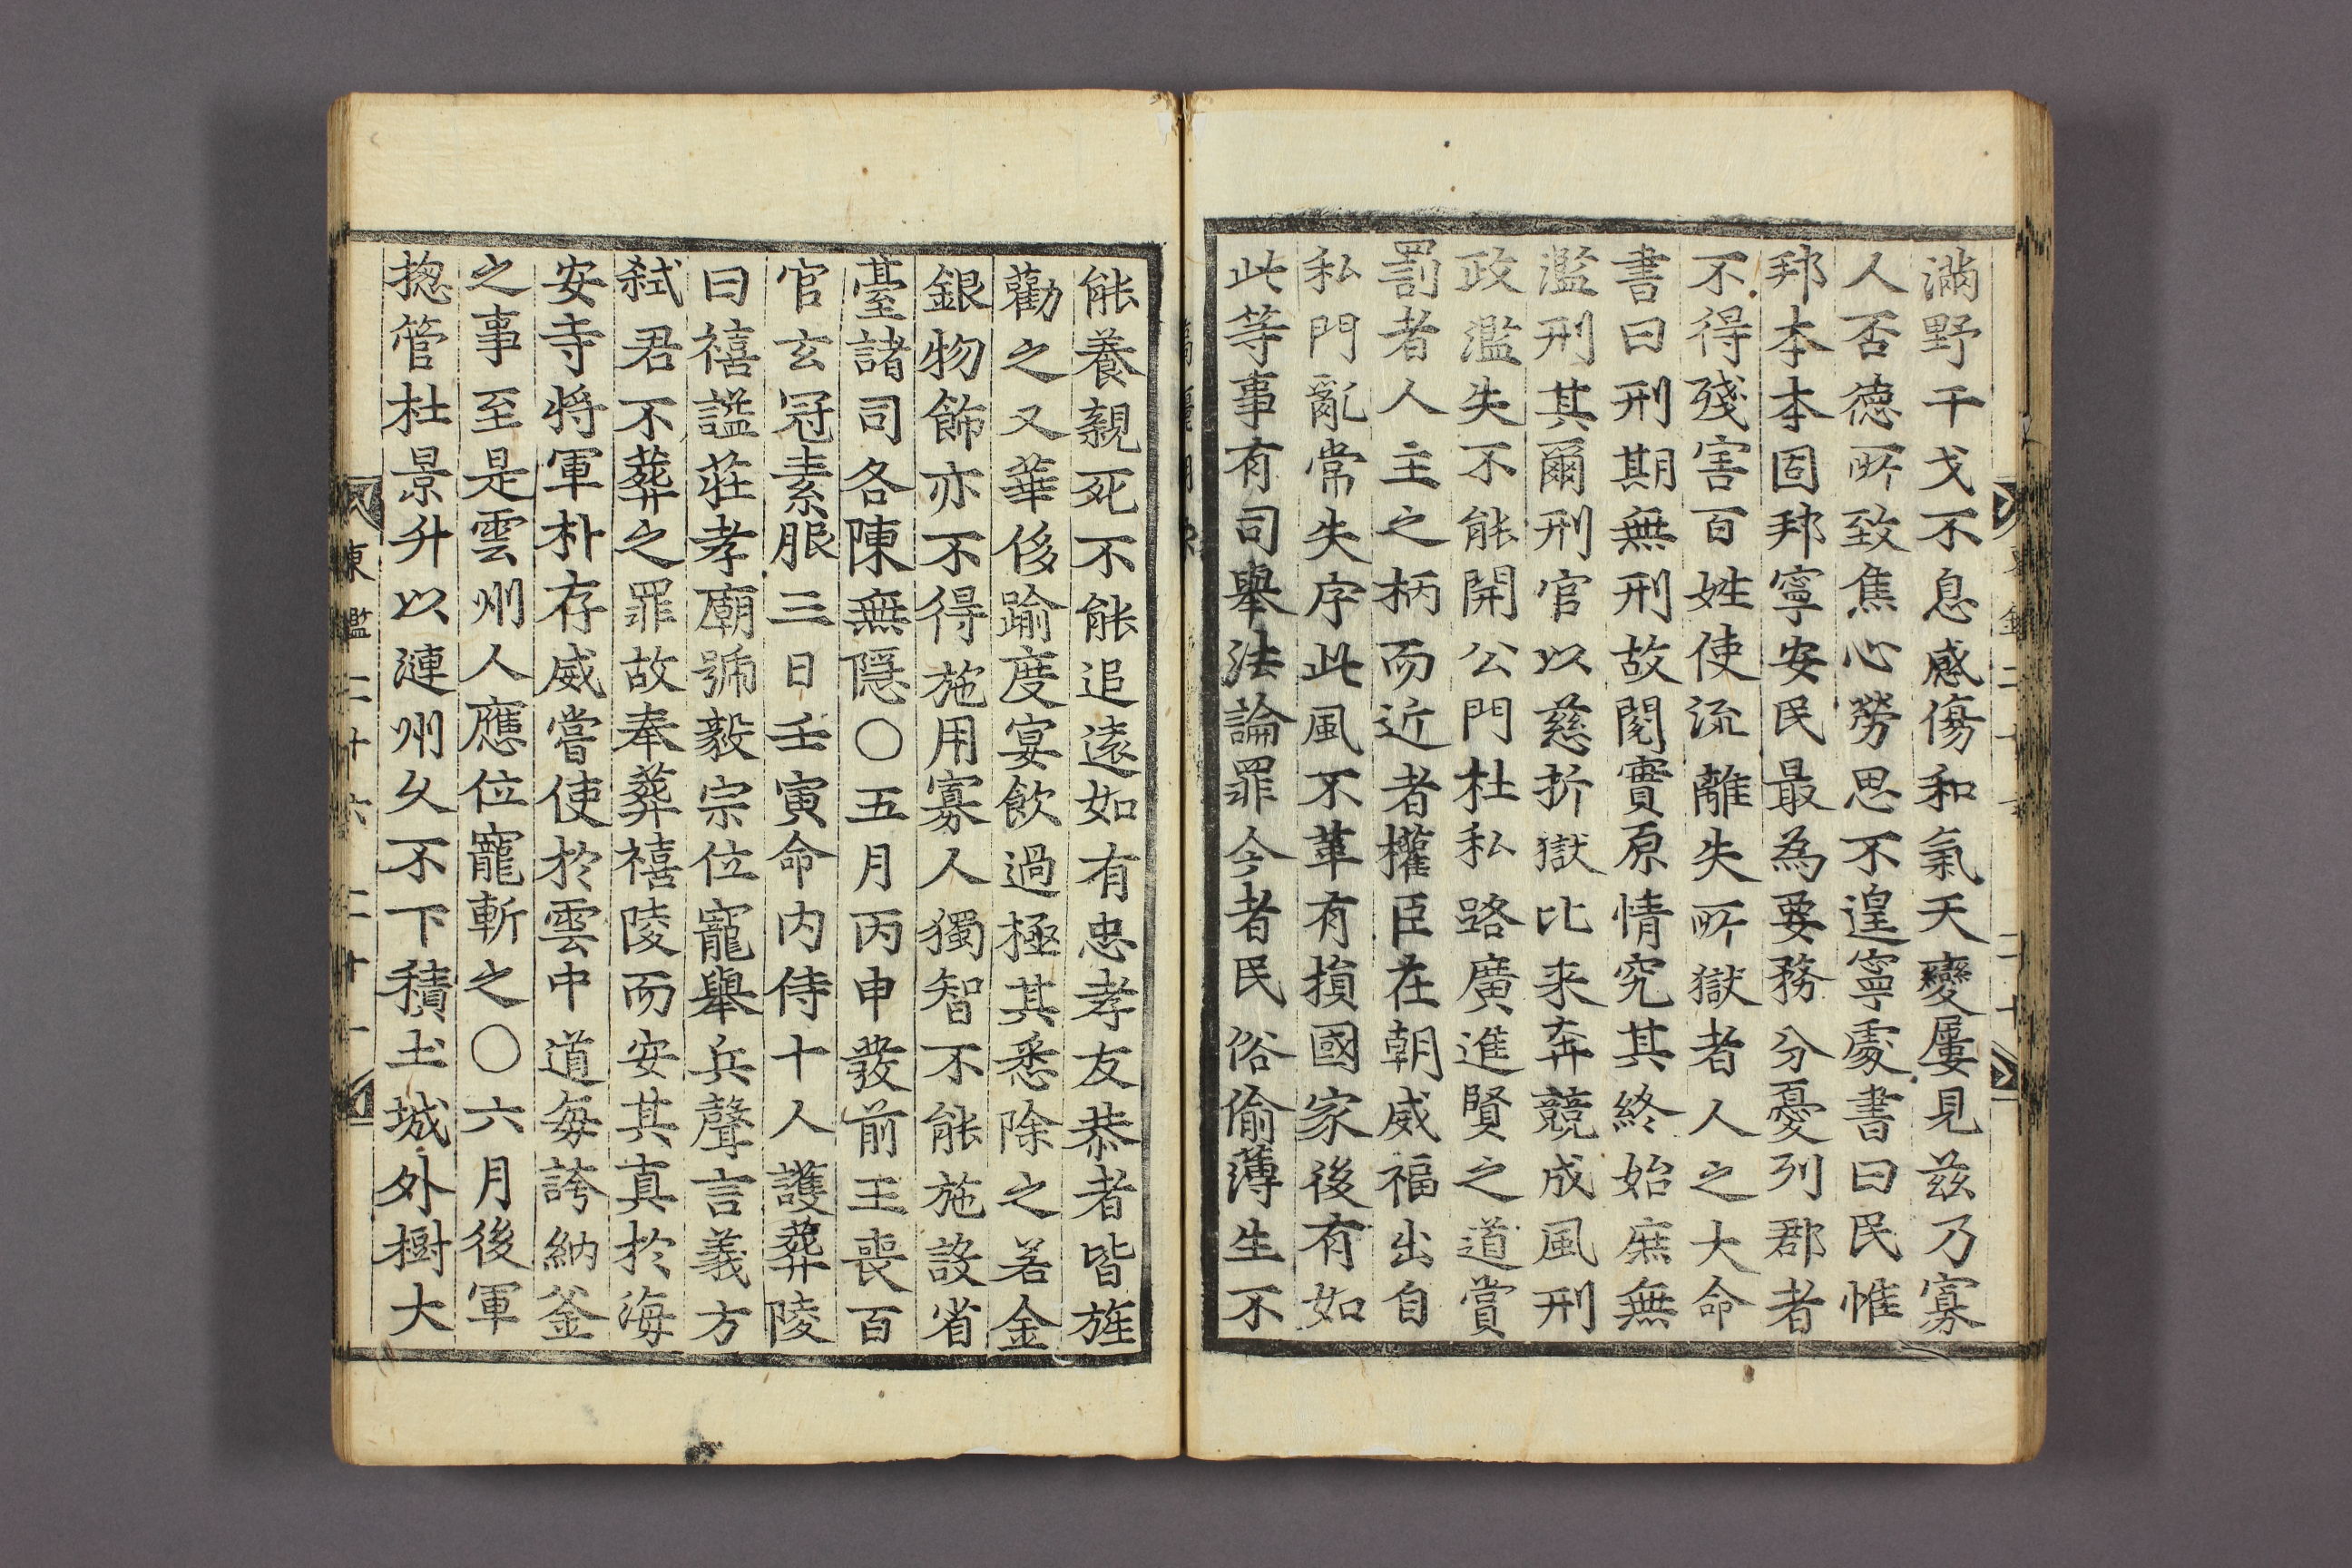 滿野干戈不息感傷和氣天變屢見茲乃寡
人否德所致焦心勞思不遑寧處書曰民惟
邦本本固邦寧安民最為要務分憂列郡者
不得殘害百姓使流離失所獄者人之大命
書曰刑期無刑故閱實原情究其終始庶無
濫刑其爾刑官以慈折獄比来奔競成風刑
政濫失不能開公門杜私路廣進賢之道賞
罰者人主之柄而近者權臣在朝威福出自
私門亂常失序此風不革有損國家後有如
此等事有司舉法論罪今者民俗偷薄生不
能養親死不能追遠如有忠孝友恭者皆旌
勸之又華侈踰度宴飲過極其悉除之若金
銀物飾亦不得施用寡人獨智不能施設省
臺諸司各陳無隱○五月丙申發前王喪百
官玄冠素服三日壬寅命内侍十人護葬陵
曰禧謚莊孝廟號毅宗位寵舉兵聲言義方
弑君不葬之罪故奉葬禧陵而安其真於海
安寺將軍朴存威嘗使於雲中道每誇納釜
之事至是雲州人應位寵斬之○六月後軍
捴管杜景升以漣州久不下積土城外樹大
東鑑二十六 二十一